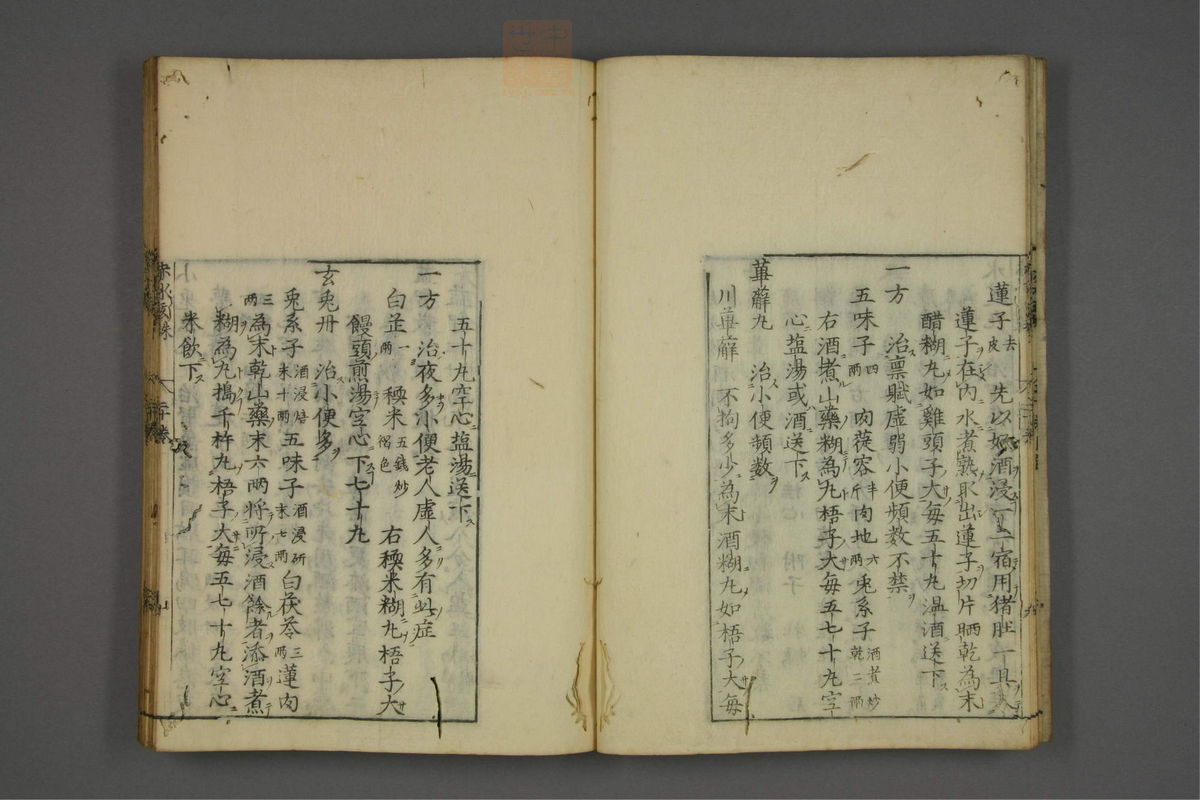 蓮子去皮 先以好酒浸一二宿用猪肚一具入
蓮子在內水煮熟取出蓮子切片晒乾為末
醋糊丸如雞頭子大每五十丸温酒送下
一方 治禀賦虛弱小便頻数不禁
五味子四兩 肉蓯容半斤 肉地六兩 兎糸子酒煮炒乾二兩
右酒煮山藥糊為丸梧子大每五七十丸空
心塩湯或酒送下
萆薢丸 治小便頻数
川萆薢 不拘多少為末酒糊丸如梧子大每
五十丸空心塩湯送下
一方 治夜多小便老人虛人多有此症
白芷一兩 糯米五錢炒褐色 右糯米糊丸梧子大
饅頭煎湯空心下七十丸
玄兎丹 治小便多
兎糸子酒浸焙末十兩 五味子酒浸研末七兩 白茯苓三兩 蓮肉
三兩為末乾山藥末六兩將所浸酒餘者添酒煮
糊為丸搗千杵丸梧子大每五七十丸空心
米飲下
赤水玄珠